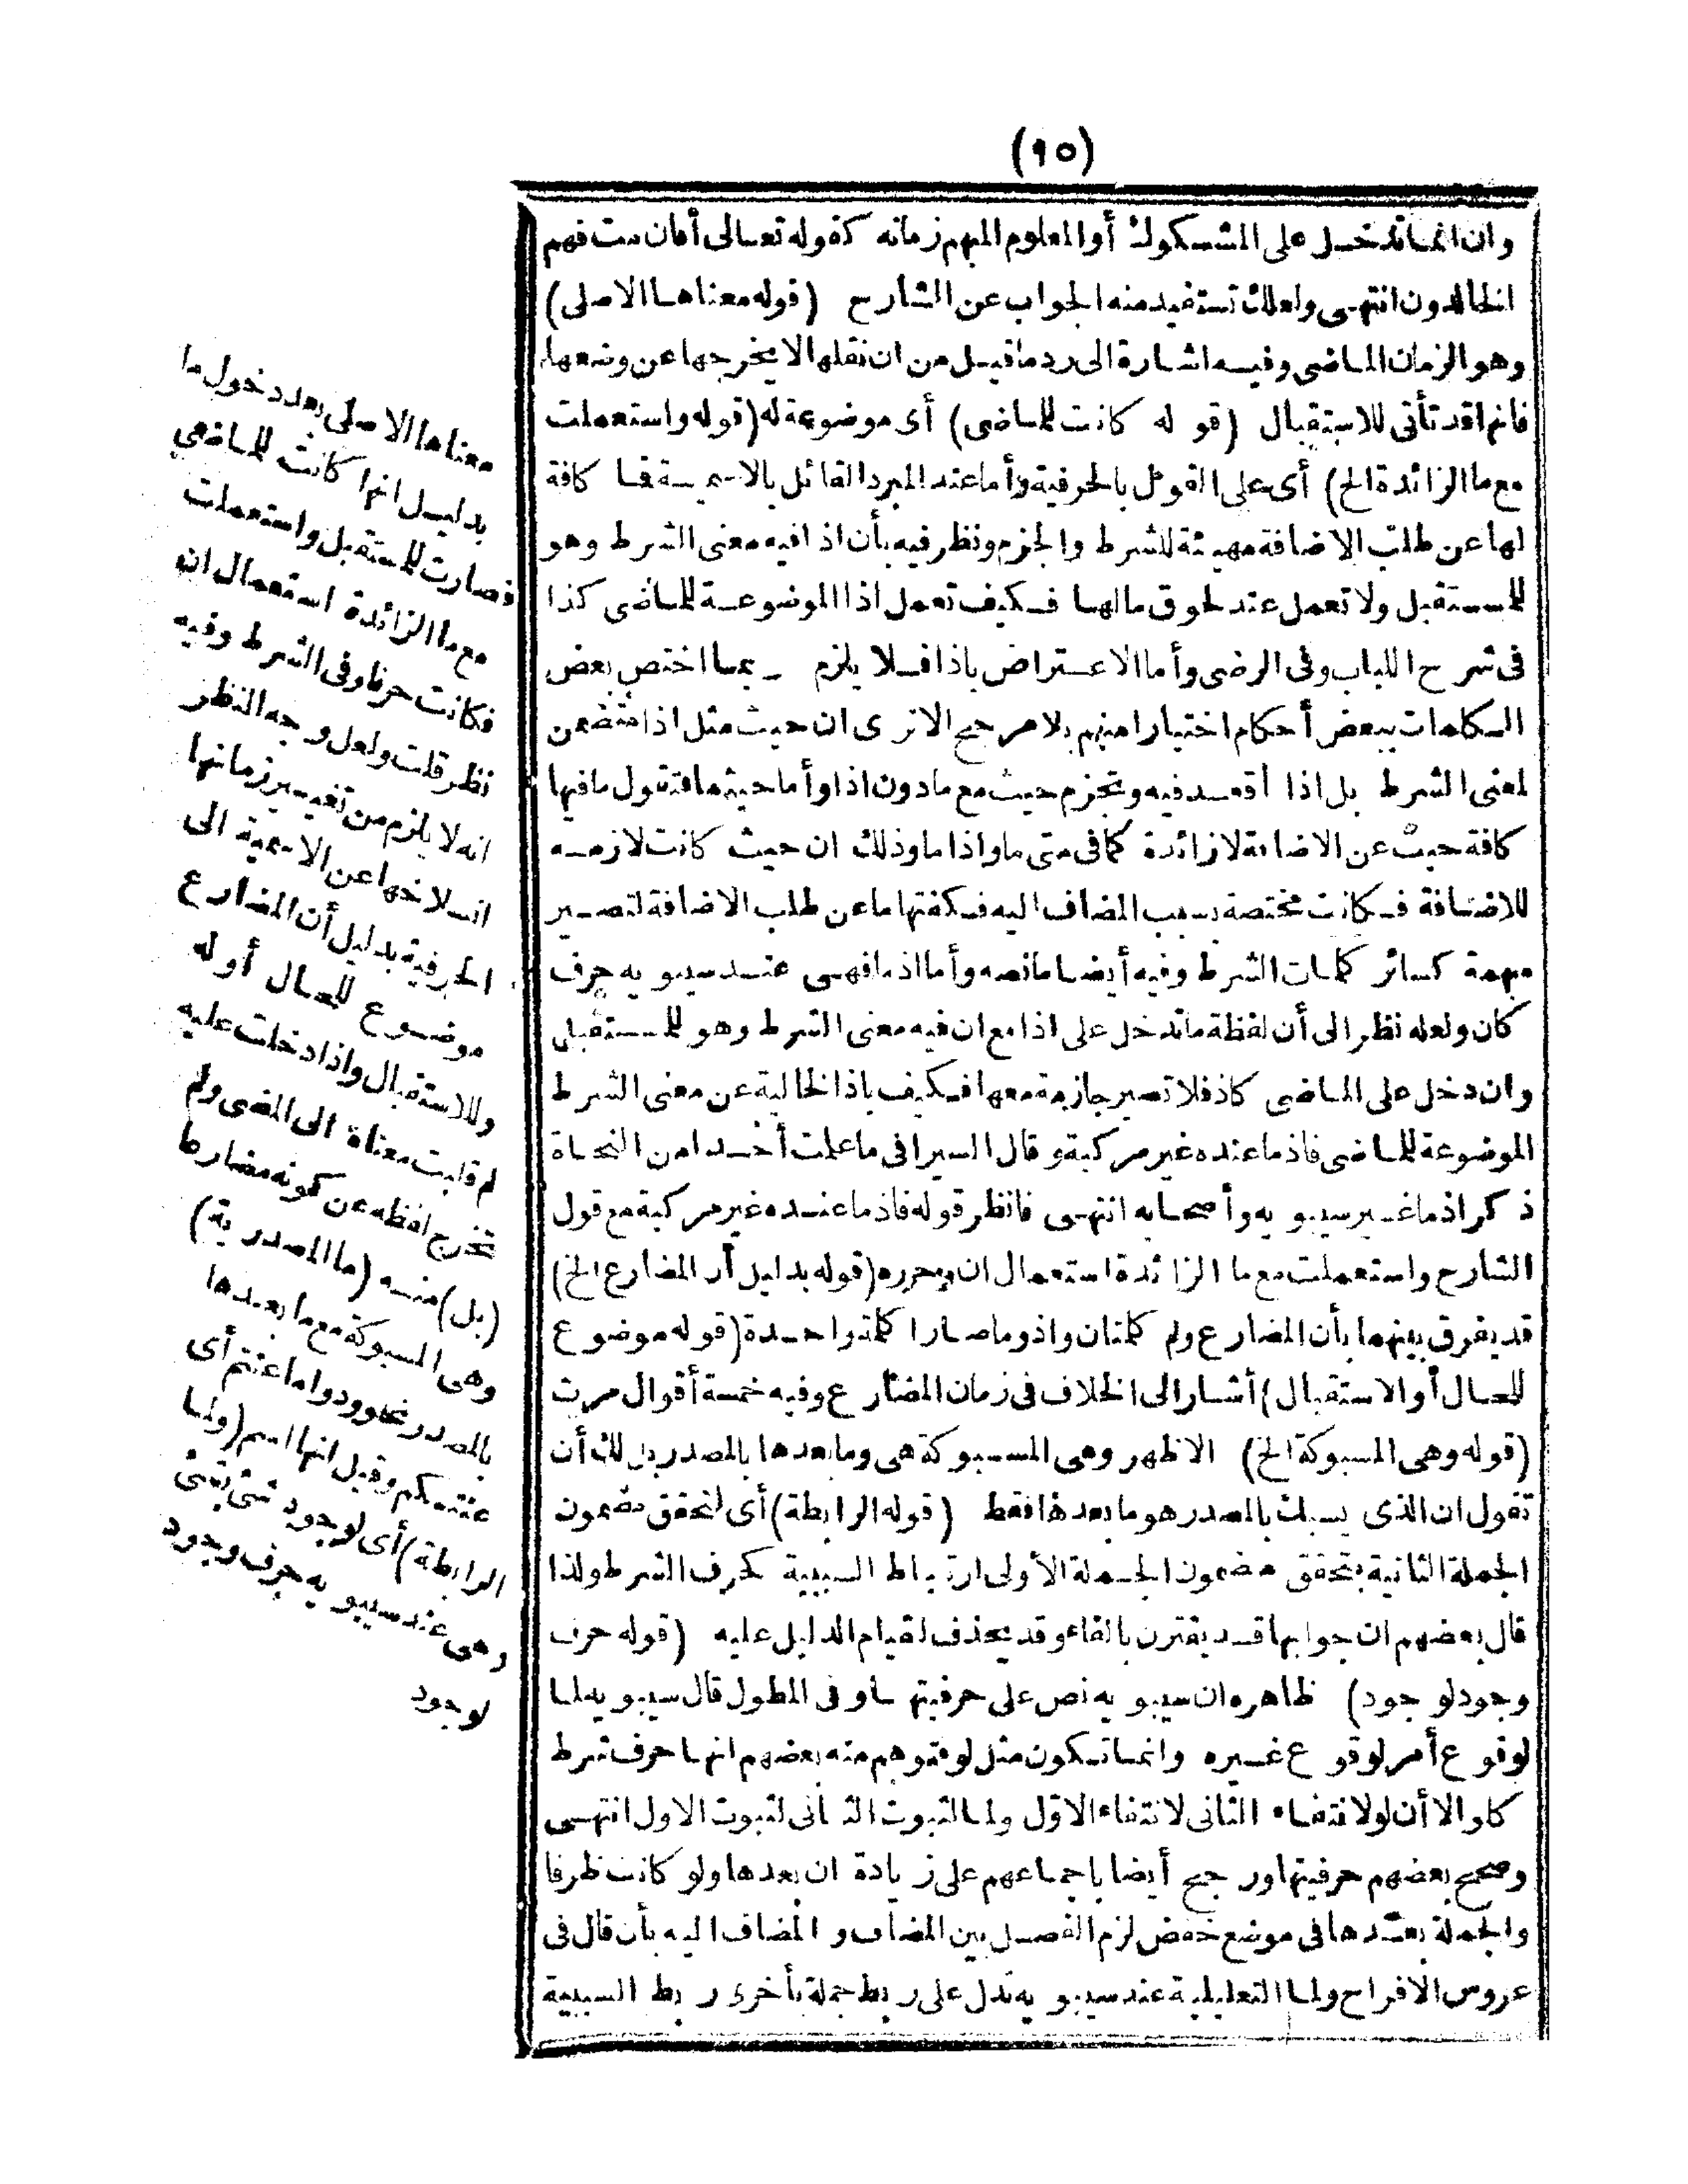 (٩٥)
وان انما تدخل على المشكوك أو المعلوم المبهم زمانه كقوله تعالى أفان مت فهم
الخالدون انتهى ولعلك تستفيد منه الجواب عن الشارح (قوله معناها الاصلى)
وهو الزمان الماضى وفيه اشارة الى رد ماقيل من ان نقلها لا يخرجها عن وضعها
فانها قد تأتى للاستقبال (قوله كانت للماضى) أى موضوعة له (قوله واستعملت
مع ما الزائدة الخ) أى على القول بالحرفية وأما عند المبرد القائل بالاسمية فما كافة
لها عن طلب الاضافة مهيئة للشرط والجزم ونظر فيه بأن اذا فيه معنى الشرط وهو
للمستقبل ولا تعمل عند لحوق ما لها فكيف تعمل اذ الموضوعة للماضى كذا
فى شرح اللباب وفى الرضى وأما الاعتراض باذا فلا يلزم ربما اختص بعض
الكلمات ببعض أحكام اختيارا منهم بلا مرجح الا ترى ان حيث مثل اذا متضمن
لمعنى الشرط بل اذا أقعد فيه وتجزم حيث مع ما دون اذا وأما حيثما فتقول ما فيها
كافة حيث عن الاضافة لا زائدة كما فى متى ما واذا ما وذلك ان حيث كانت لازمة
للاضافة فكانت مختصة بسبب المضاف اليه فكفتها ما عن طلب الاضافة لتصير
مبهمة كسائر كلمات الشرط وفيه أيضا ما نصه وأما اذما فهى عند سيبويه حرف
كان ولعله نظر الى أن لفظة ما تدخل على اذا مع ان فيه معنى الشرط وهو للمستقبل
وان دخل على الماضى كاذ فلا تصير جازمة معها فكيف باذ الخالية عن معنى الشرط
الموضوعة للماضى فاذما عنده غير مركبة وقال السيرافى ما علمت أحدا من النحاة
ذكر اذما غير سيبويه وأصحابه انتهى فانظر قوله فاذما عنده غير مركبة مع قول
الشارح واستعملت مع ما الزائدة استعمال ان وحرره (قوله بدليل أن المضارع الخ)
قد يفرق بينهما بأن المضارع ولم كلمتان واذ وما صارا كلمة واحدة (قوله موضوع
للحال أو الاستقبال) أشار الى الخلاف فى زمان المضارع وفيه خمسة أقوال مرت
(قوله وهى المسبوكة الخ) الاظهر وهى المسبوكة هى وما بعدها بالمصدر بل لك أن
تقول ان الذى يسبك بالمصدر هو ما بعدها فقط (قوله الرابطة) أى لتحقق مضمون
الجملة الثانية بتحقق مضمون الجملة الأولى ارتباط السببية كحرف الشرط ولذا
قال بعضهم ان جوابها قد يقترن بالفاء وقد يحذف لقيام الدليل عليه (قوله حرف
وجود لوجود) ظاهره ان سيبويه نص على حرفيتها وفى المطول قال سيبويه لما
لوقوع أمر لوقوع غيره وانما تكون مثل لو فتوهم منه بعضهم انها حرف شرط
كلو الا أن لو لانتفاء الثانى لانتفاء الاول ولما لثبوت الثانى لثبوت الاول انتهى
وصحح بعضهم حرفيتها ورجح أيضا باجماعهم على زيادة ان بعدها ولو كانت ظرفا
والجملة بعدها فى موضع خفض لزم الفصل بين المضاف والمضاف اليه بأن قال فى
عروس الافراح ولما التعليلية عند سيبويه تدل على ربط جملة بأخرى ربط السببية
معناها الاصلى بعد دخول ما
بدليل انها كانت للماضى
فصارت للمستقبل واستعملت
مع ما الزائدة استعمال ان
فكانت حرفا وفى الشرط وفيه
نظر قلت ولعل وجه النظر
انه لا يلزم من تغيير زمانها
انسلاخها عن الاسمية الى
الحرفية بدليل أن المضارع
موضوع للحال أو له
وللاستقبال واذا دخلت عليه
لم قلبت معناه الى المضى ولم
تخرج لفظه عن كونه مضارعا
(بل) منه (ما المصدرية)
وهى المسبوكة مع ما بعدها
بالمصدر نحو ودوا ما عنتم أى
عنتكم وقيل انها اسم (ولما
الرابطة) أى لوجود شئ بشئ
وهى عند سيبويه حرف وجود
لوجود